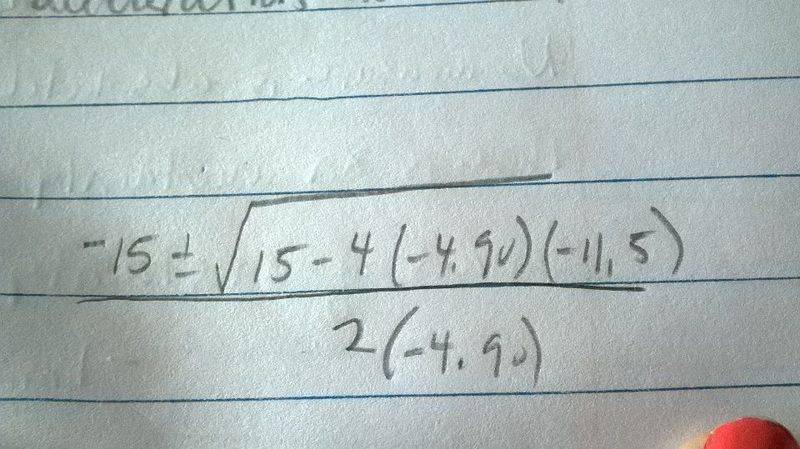 -15 ± √15 - 4 (-4.90) (-11.5)
2(-4.90)